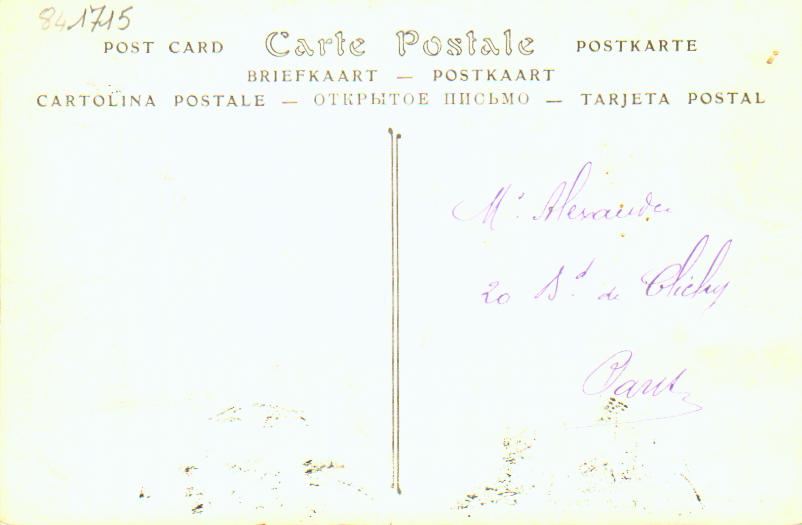 841715
POST CARD Carte Postale POSTKARTE
BRIEFKAART — POSTKAART
CARTOLINA POSTALE — ОТКРЫТОЕ ПИСЬМО — TARJETA POSTAL
Mr. Alexandre
20 Bd. de Clichy
Paris